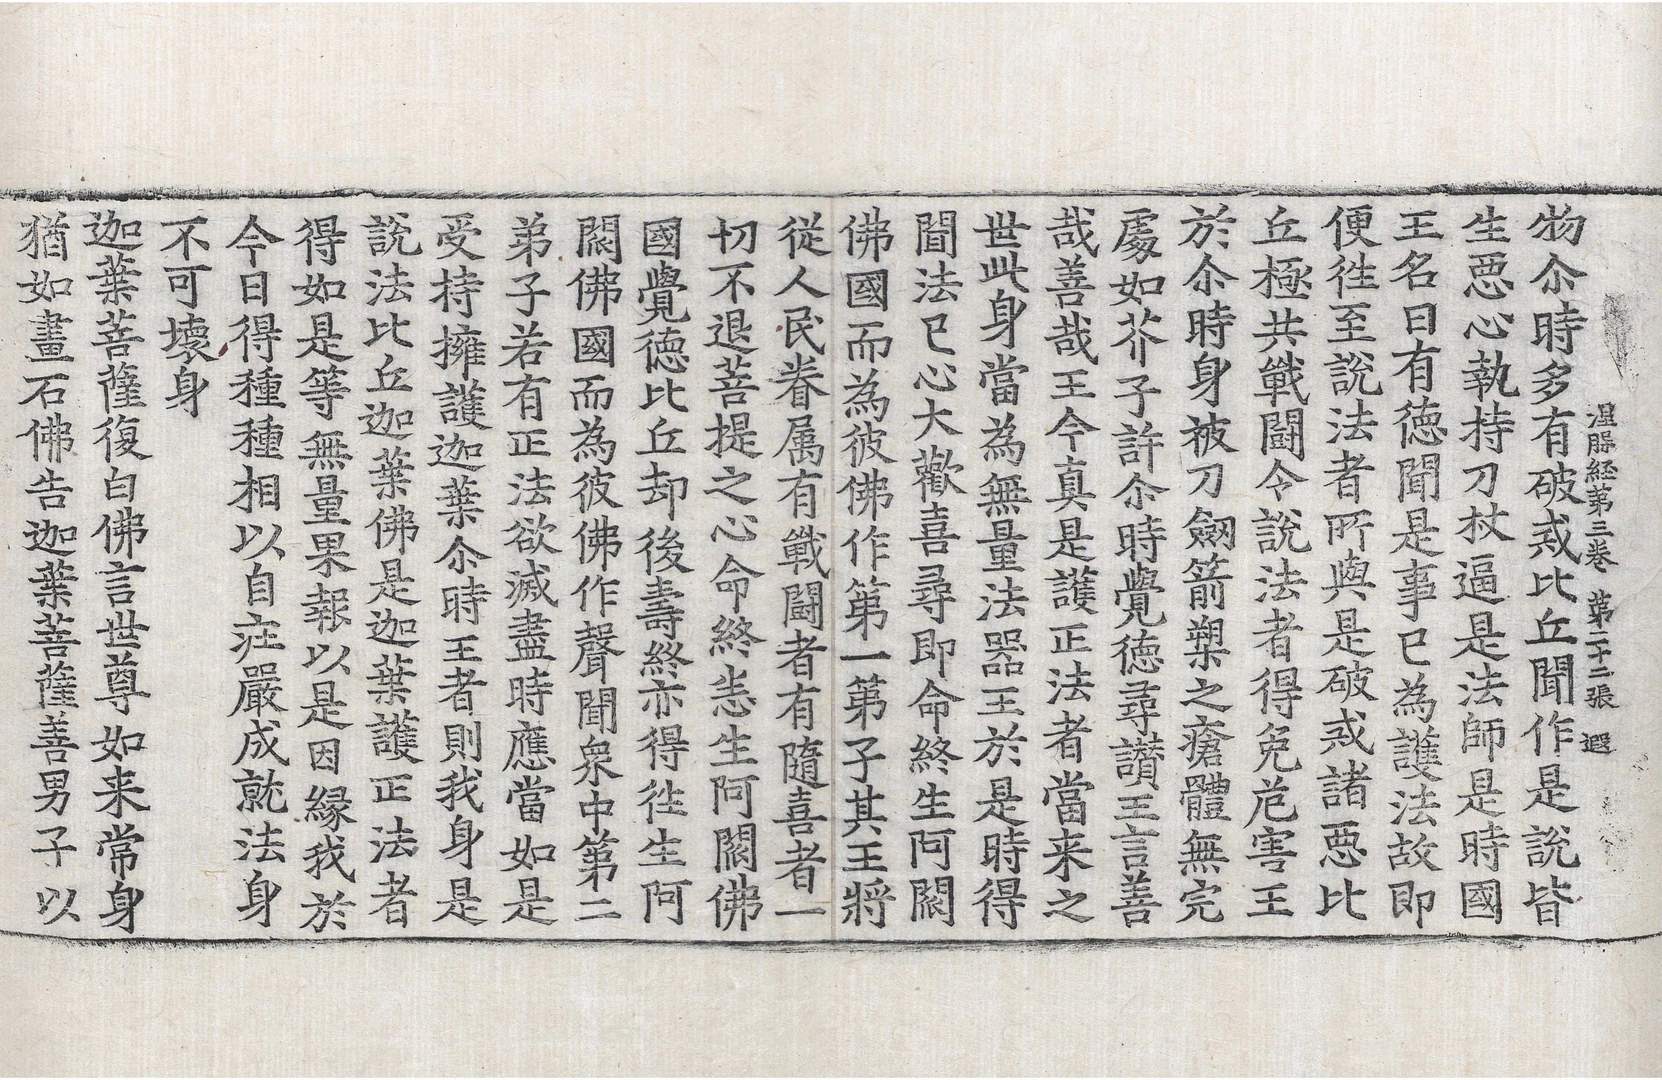 涅槃経第三卷　第二十二張　遐
物尒時多有破戒比丘聞作是說皆
生惡心執持刀杖逼是法師是時國
王名曰有徳聞是事已為護法故即
便徃至說法者所與是破戒諸惡比
丘極共戰鬪令說法者得免危害王
於尒時身被刀劔箭槊之瘡體無完
處如芥子許尒時覺徳尋讃王言善
哉善哉王今真是護正法者當来之
世此身當為無量法器王於是時得
聞法已心大歡喜尋即命終生阿閦
佛國而為彼佛作第一弟子其王將
從人民眷属有戰鬪者有隨喜者一
切不退菩提之心命終悉生阿閦佛
國覺徳比丘却後壽終亦得徃生阿
閦佛國而為彼佛作聲聞衆中第二
弟子若有正法欲滅盡時應當如是
受持擁護迦葉尒時王者則我身是
說法比丘迦葉佛是迦葉護正法者
得如是等無量果報以是因縁我於
今日得種種相以自莊嚴成就法身
不可壞身
迦葉菩薩復白佛言世尊如来常身
猶如畫石佛告迦葉菩薩善男子以